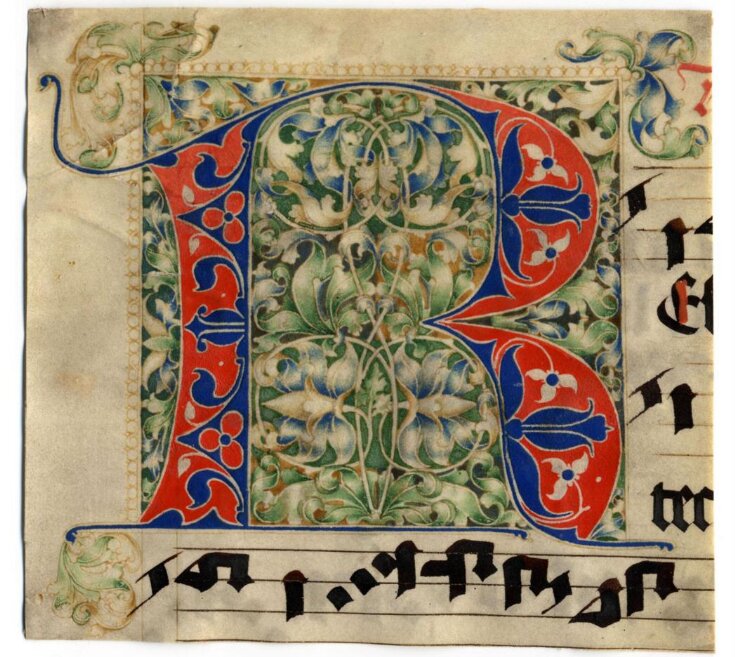 R
El
tec